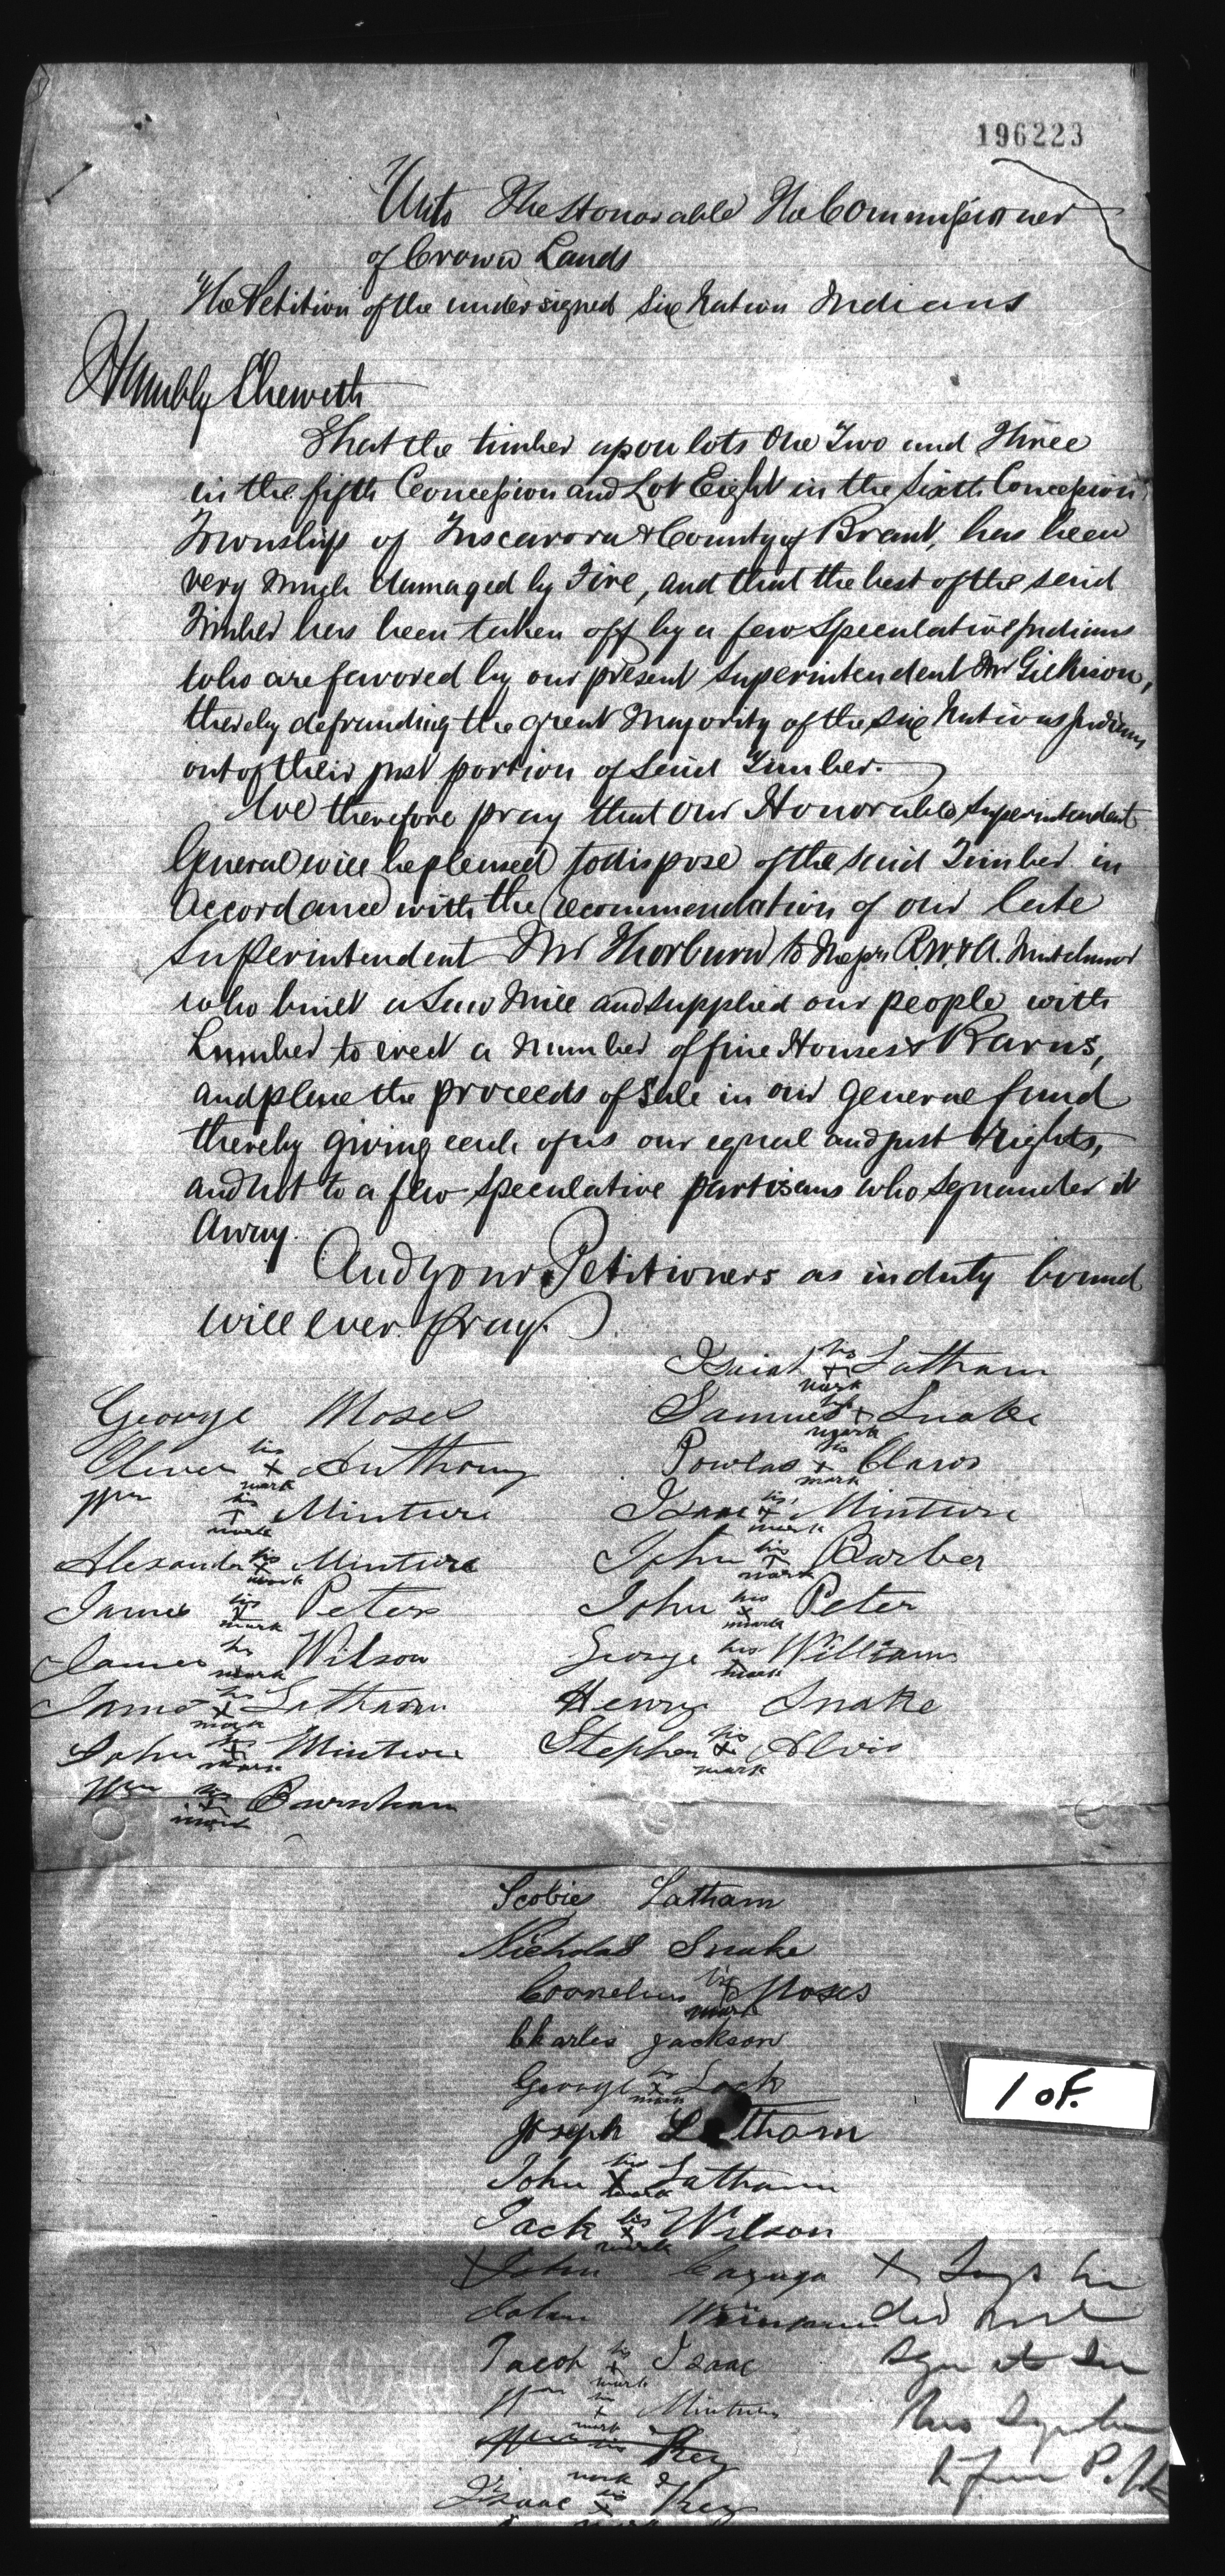 196223
Unto The Honorable The Commissioner
of Crown Lands
The Petition of the undersigned Six Nation Indians
Humbly Sheweth
That the timber upon lots One Two and Three
in the fifth Concession and Lot Eight in the Sixth Concession
Township of Tuscarora & County of Brant, has been
very much damaged by Fire, and that the best of the said
Timber has been taken off by a few Speculative Indians
who are favored by our present Superintendent Mr Gilkison,
thereby defrauding the great Majority of the Six Nations Indians
out of their just portion of Said Timber.
We therefore pray that our Honorable Superintendent
General will be pleased to dispose of the said Timber in
accordance with the recommendation of our late
Superintendent Mr Thorburn to Messrs R.W. & A.
who built a Saw Mill and supplied our people with
Lumber to erect a number of fine Houses & Barns,
and place the proceeds of Sale in our general fund
thereby giving each of us our equal and just Rights,
and not to a few speculative partisans who squander it
away.
And your Petitioners as in duty bound
will ever pray.
George Moses
Oliver his x mark Anthony
Wm his + mark Minture
Alexander his x mark Minture
James his x mark Peters
James his mark Wilson
James his x mark Latham
John his + mark Minture
Wm his + mark Burnham
Isaiah his + mark Latham
Samuel his + mark Snake
Powlas his + mark Claws
Isaac his + mark Minture
John his + mark Barber
John his x mark Peter
George his x mark Williams
Henry Snake
Stephen his x mark Alvis
Scobie Latham
Nicholas Snake
Cornelius his x mark Moses
Charles Jackson
George his x mark
Joseph Latham
John his X mark Latham
Jack his x mark Wilson
x John Cayuga x Says he
John did not
Jacob his + mark Isaac sign it
Wm his + mark Minture
his Key
mark
Isaac his x Key
1 of.